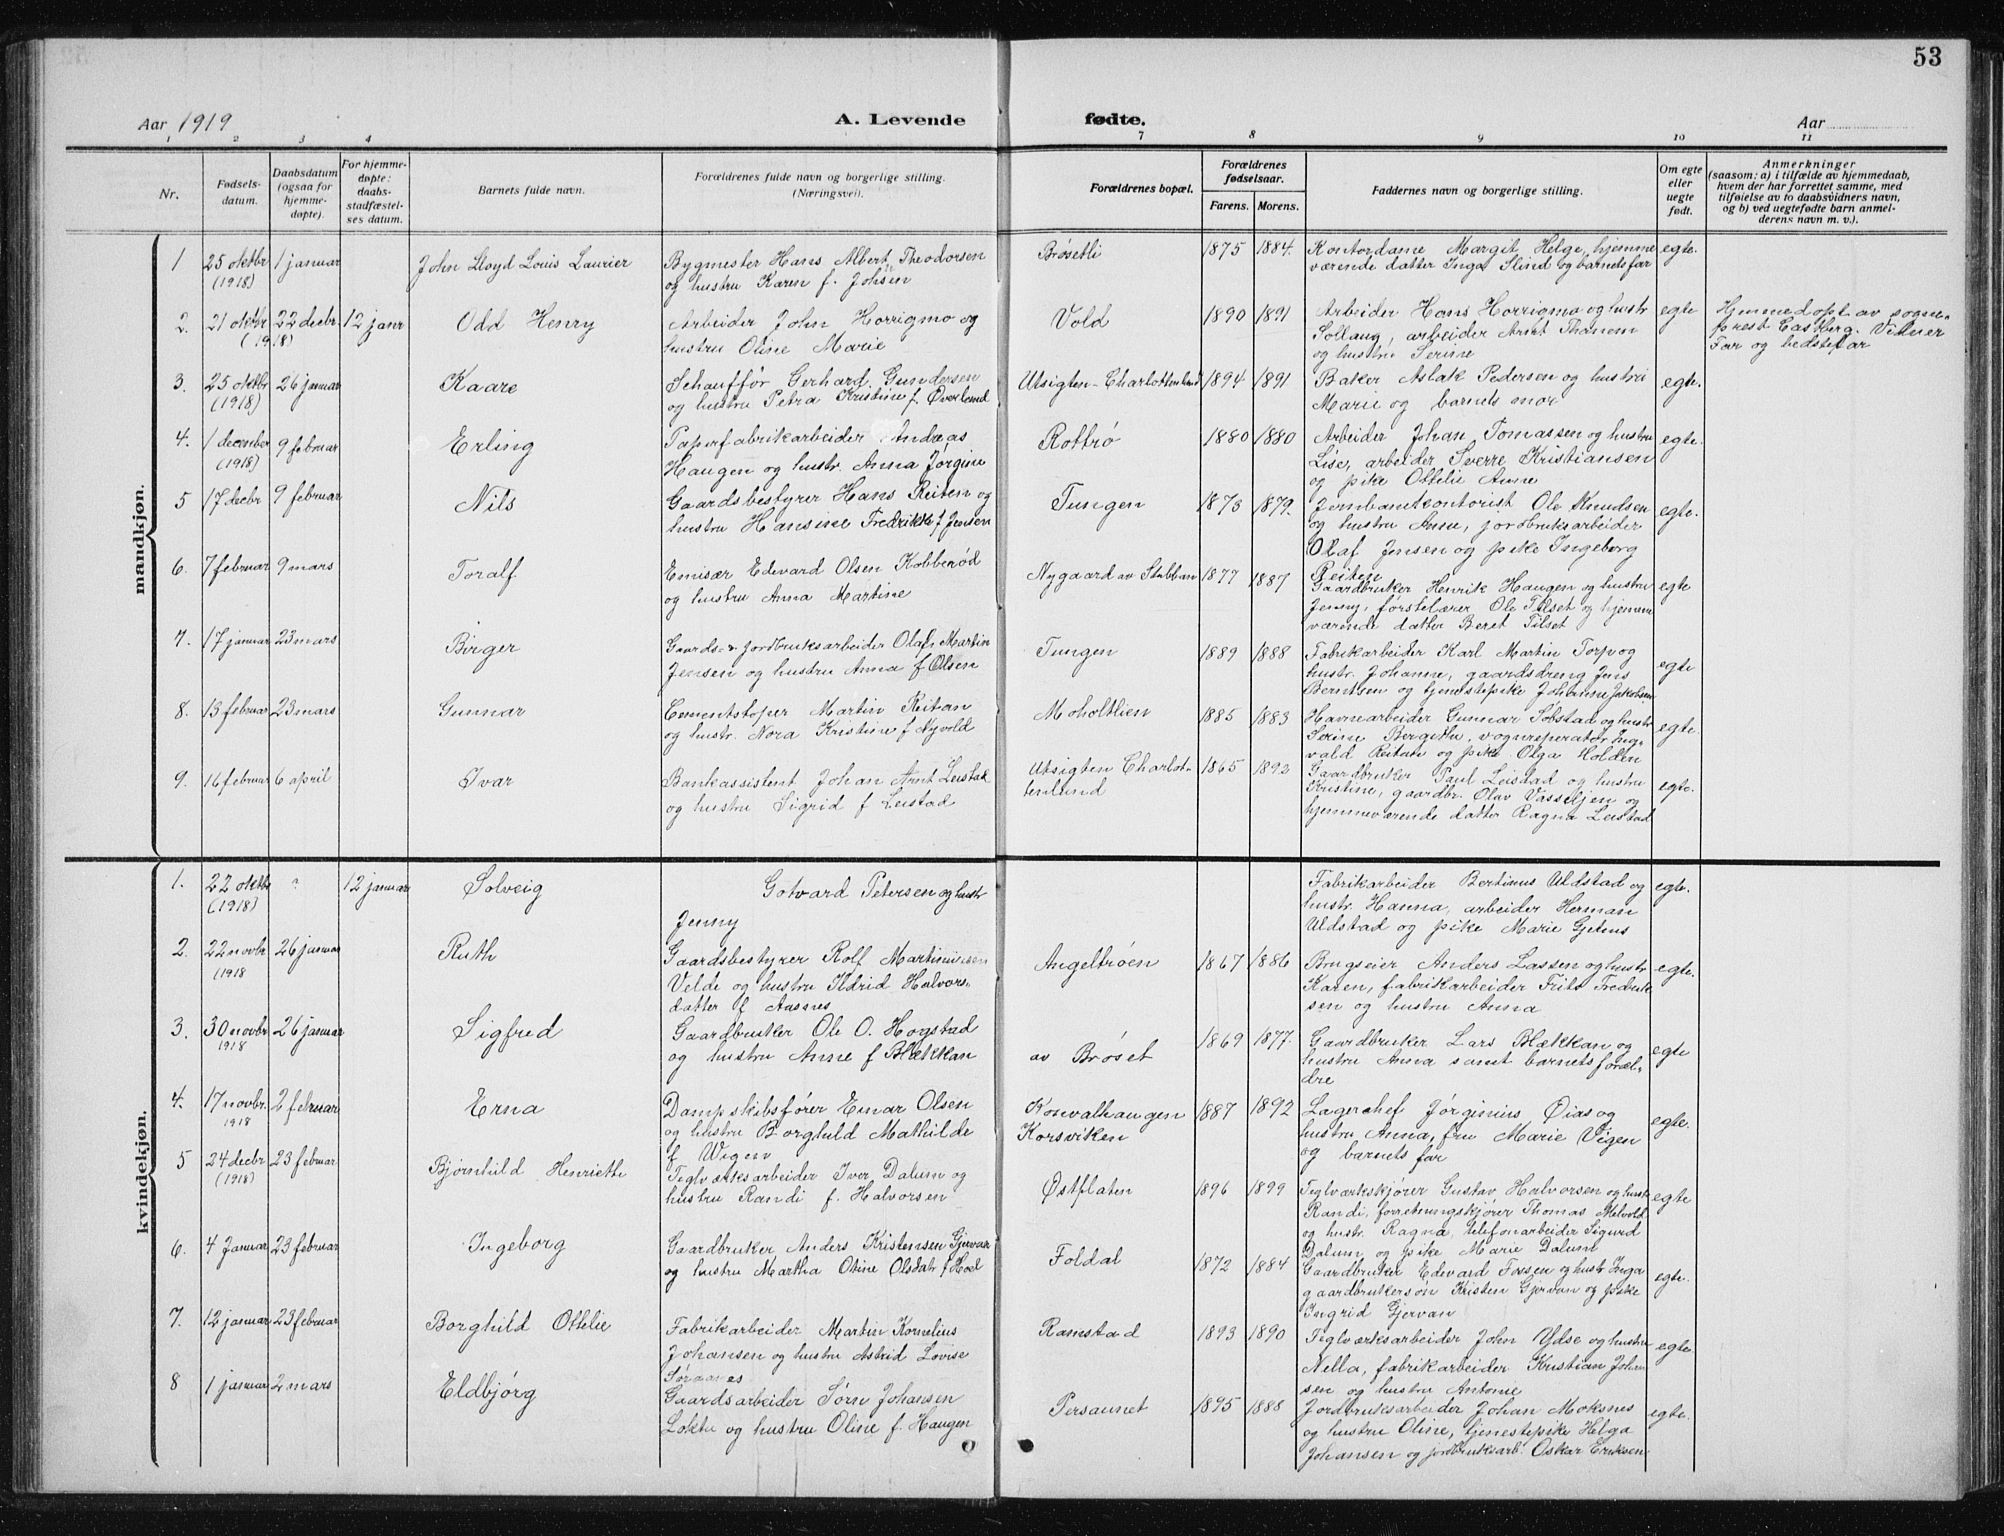 53
Aar 1919
A. Levende fødte.
Aar
1 2 3 4 7 8 9 10 11
Nr.
Fødsels-
datum.
Daabsdatum
(ogsaa for
hjemme-
døpte).
For hjemme-
døpte:
daabs-
stadfæstel-
ses datum.
Barnets fulde navn.
Forældrenes fulde navn og borgerlige stilling.
(Næringsvei).
Forældrenes bopæl.
Forældrenes
fødselsaar.
Farens. Morens.
Faddernes navn og borgerlige stilling.
Om egte
eller
uegte
født.
Anmerkninger
(saasom: a) i tilfælde av hjemmedaab,
hvem der har forrettet samme, med
tilføielse av to daabsvidners navn,
og b) ved uegtefødte barn anmel-
derens navn m. v.).
mandkjøn.
1 25 oktbr 1 januar John Lloyd Louis Laurier Bygmester Hans Albert Theodorsen Brøsetli 1875 1884. Kontordame Margit Helge, hjemme egte.
(1918) og hustru Karen f. Johsen værende datter Inga Slind og barnets far
2. 21 oktbr 22 decbr 12 janr Odd Henry Arbeider John Horrigmo og Vold 1890 1891 Arbeider Hans Horrigmo og hustr egte Hjemmedøpt av sogne-
(1918) hustru Oline Marie Sollaug, arbeider Arnt Thanem prest Castberg. Vitner
og hustru Serine Far og bedstefar
3. 25 oktbr 26 januar Kaare Schauffør Gerhard Gundersen Utsigten-Charlottenlund 1894 1891 Baker Aslak Pedersen og hustru egte.
(1918) og hustru Petra Kristine f. Øverland Marie og barnets mor
4. 1 december 9 februar Erling Papirfabrikarbeider Andreas Rotbrø 1880 1880 Arbeider Johan Tomassen og hustru egte.
(1918) Haugen og hustr. Anna Jørgine Lise, arbeider Sverre Kristiansen
og pike Ottelie Anne
5 17 decbr 9 februar Nils Gaardsbestyrer Hans Reiten og Tungen 1873 1879. Jernbanekontorist Ole Knudsen egte.
hustru Hansine Fredrikke f Jensen og hustru Anne, jordbruksarbeider
Olaf Jensen og pike Ingeborg
Reiten
6. 7 februar 9 mars Toralf Emisær Edevard Olsen Kobberød Nygaard av Stubban 1877 1887 Gaardbruker Henrik Haugen og hustru egte
og hustru Anna Martine Jenny, førstelærer Ole Tilset og hjemme
værende datter Beret Tilset
7. 17 januar 23 mars Birger Gaards- & jordbruksarbeider Olaf Martin Tungen 1889 1888 Fabrikarbeider Karl Martin Torp og egte
Jensen og hustru Anna f Olsen hustr. Johanne, gaardsdreng Jens
Berntsen og tjenestepike Johanne Jakobsen
8. 13 februar 23 mars Gunnar Cementstøper Martin Reitan Moholtlien 1885 1883 Havnearbeider Gunnar Sobstad og hustr egte.
og hustr. Nora Kristine f Nyvold Serine Bergitte, vognreperatør Ing-
vald Reitan og pike Olga Holden
9. 16 februar 6 april Ivar Bankassistent Johan Arnt Leistad Utsigten Charlot- 1865 1892 Gaardbruker Paul Leistad og hustru egte.
og hustru Sigrid f Leistad tenlund Kristine, gaardbr. Olav Vasseljen og
hjemmeværende datter Ragna Leistad
kvindekjøn.
1. 22 oktbr ? 12 januar Solveig Gotvard Petersen og hustr Fabrikarbeider Bertinus Uldstad og egte.
(1918) Jenny hustr. Hanna, arbeider Herman
Uldstad og pike Marie
2. 22 novbr 26 januar Ruth Gaardsbestyrer Rolf Martiniusen Angeltrøen 1867 1886 Brugseier Anders Lassen og hustr egte.
1918 Velde og hustru Ildrid Halvors- Karen, fabrikarbeider Frits Fredrik-
datter f Aasnes sen og hustru Anna
3. 30 novbr 26 januar Sigfred Gaardbruker Ole O. Hogstad av Brøset 1869 1877. Gaardbruker Lars Blækkan og egte
1918 og hustru Anne f Blækkan hustru Anna samt barnets foræl-
dre
4. 17 novbr. 2 februar Erna Dampskibsfører Einar Olsen Konvalhaugen 1887 1892 Lagerchef Jørginius Øias og egte.
1918 og hustru Borghild Mathilde Korsviken hustru Anna, fru Marie Vigen
f Wigen og barnets far
5 24 decbr 23 februar Bjørnhild Henriette Teglværksarbeider Iver Dalum og Østflaten 1896 1899 Teglværkskjører Gustav Halvorsen og hustr. egte
(1918) hustru Randi f. Halvorsen Randi, forretningskjører Thomas Melvold
og hustr. Ragna, telefonarbeider Sigurd
Dalum og pike Marie Dalum
6. 4 januar 23 februar Ingeborg Gaardbruker Anders Kristensen Gjervan Foldal 1872 1884 Gaardbruker Edevard Fossen og hustr Inga egte.
og hustru Martha Otine Olsdatr f Hoel gaardbrukersøn Kristen Gjervan og pike
Ingrid Gjervan
7. 12 januar 23 februar Borghild Ottelie Fabrikarbeider Martin Kornelius Ramstad 1893 1890 Teglværksarbeider John Ydse og hustru egte.
Johansen og hustru Astrid Lovise Nella, fabrikarbeider Kristian Johan
Søraanes sen og hustru Antonie
8 1 januar 2 mars Eldbjørg Gaardsarbeider Sørn Johansen Persaunet 1895 1888 Jordbruksarbeider Johan Moksnes egte.
Løkke og hustru Oline f. Haugen og hustru Oline, tjenestepike Helga
Johansen og jordbruksarb. Oskar Eriksen